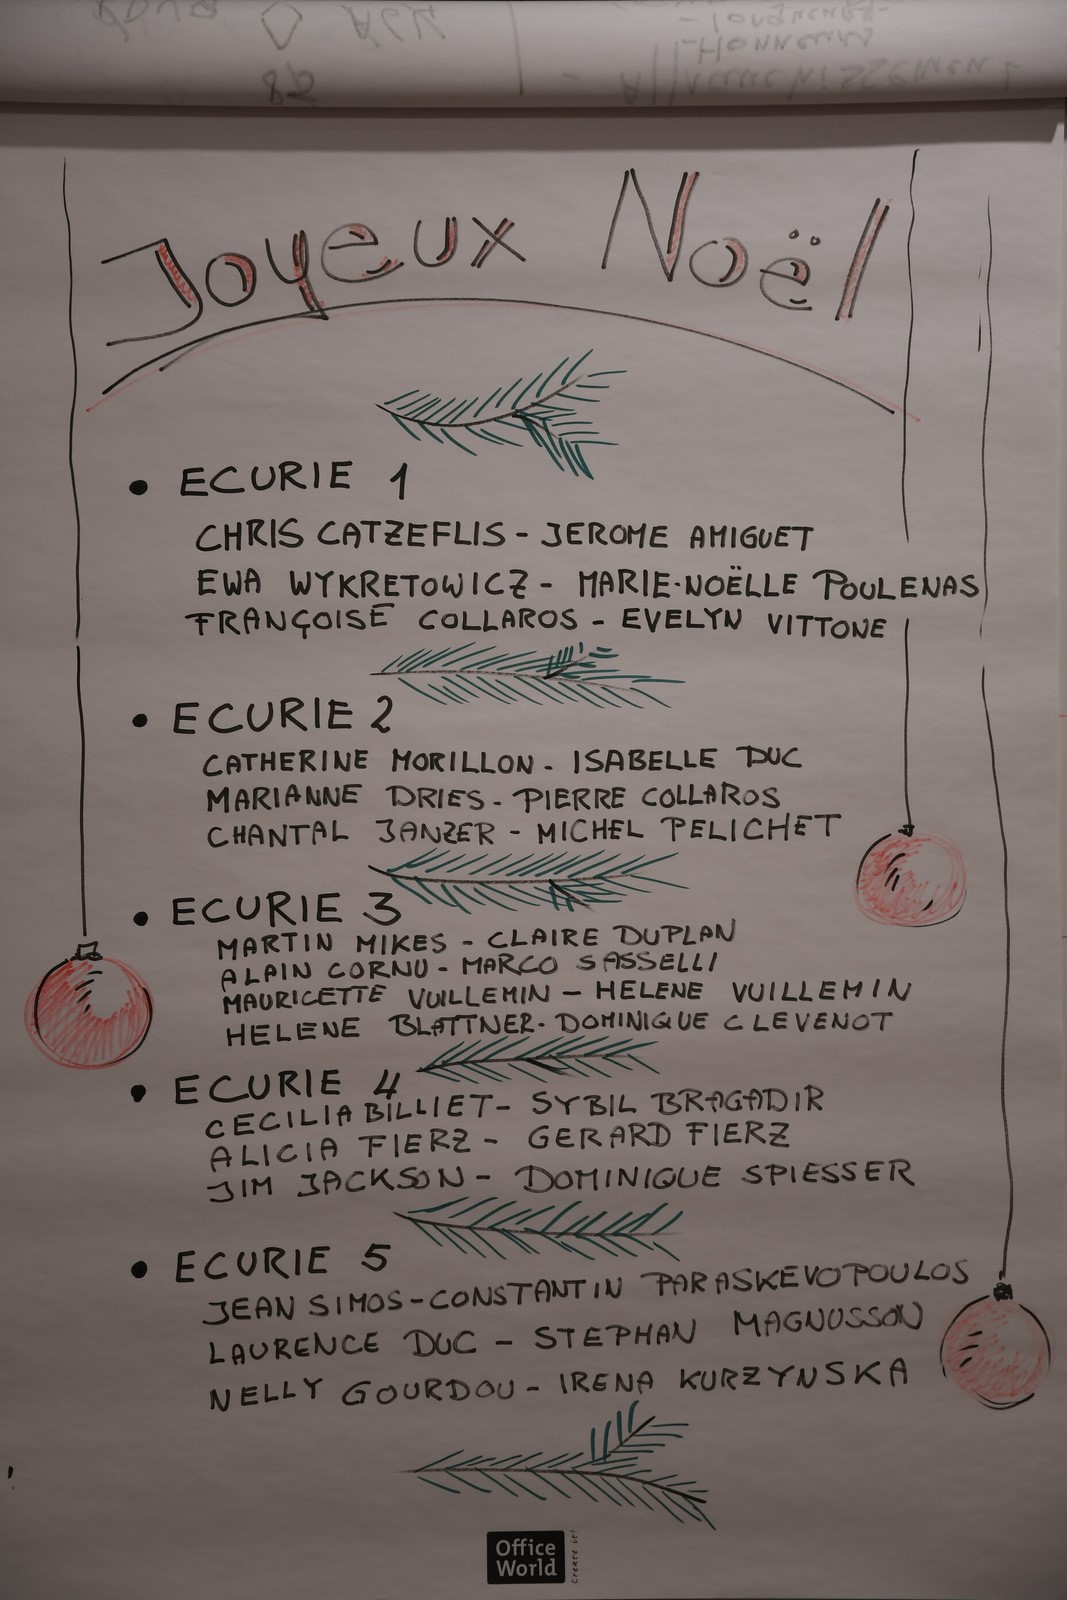 Joyeux Noël
• ECURIE 1
CHRIS CATZEFLIS - JEROME AMIGUET
EWA WYKRETOWICZ - MARIE-NOËLLE POULENAS
FRANÇOISE COLLAROS - EVELYN VITTONE
• ECURIE 2
CATHERINE MORILLON - ISABELLE DUC
MARIANNE DRIES - PIERRE COLLAROS
CHANTAL JANZER - MICHEL PELICHET
• ECURIE 3
MARTIN MIKES - CLAIRE DUPLAN
ALAIN CORNU - MARCO SASSELLI
MAURICETTE VUILLEMIN - HELENE VUILLEMIN
HELENE BLATTNER - DOMINIQUE CLEVENOT
• ECURIE 4
CECILIA BILLIET - SYBIL BRAGADIR
ALICIA FIERZ - GERARD FIERZ
JIM JACKSON - DOMINIQUE SPIESSER
• ECURIE 5
JEAN SIMOS - CONSTANTIN PARASKEVOPOULOS
LAURENCE DUC - STEPHAN MAGNUSSON
NELLY GOURDOU - IRENA KURZYNSKA
Office
World
Create it!